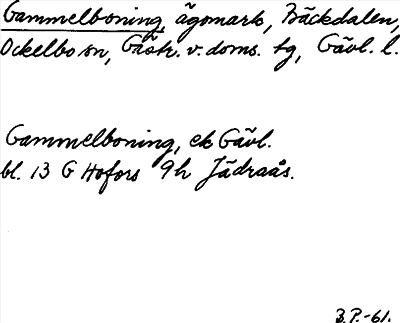 Gammelboning ägomark, Bäckdalen,
Ockelbo sn, Gästr. v. doms. tg, Gävl. l.
Gammelboning, ek Gävl.
bl. 13 G Hofors 9h Jädraås.
B.P.-61.